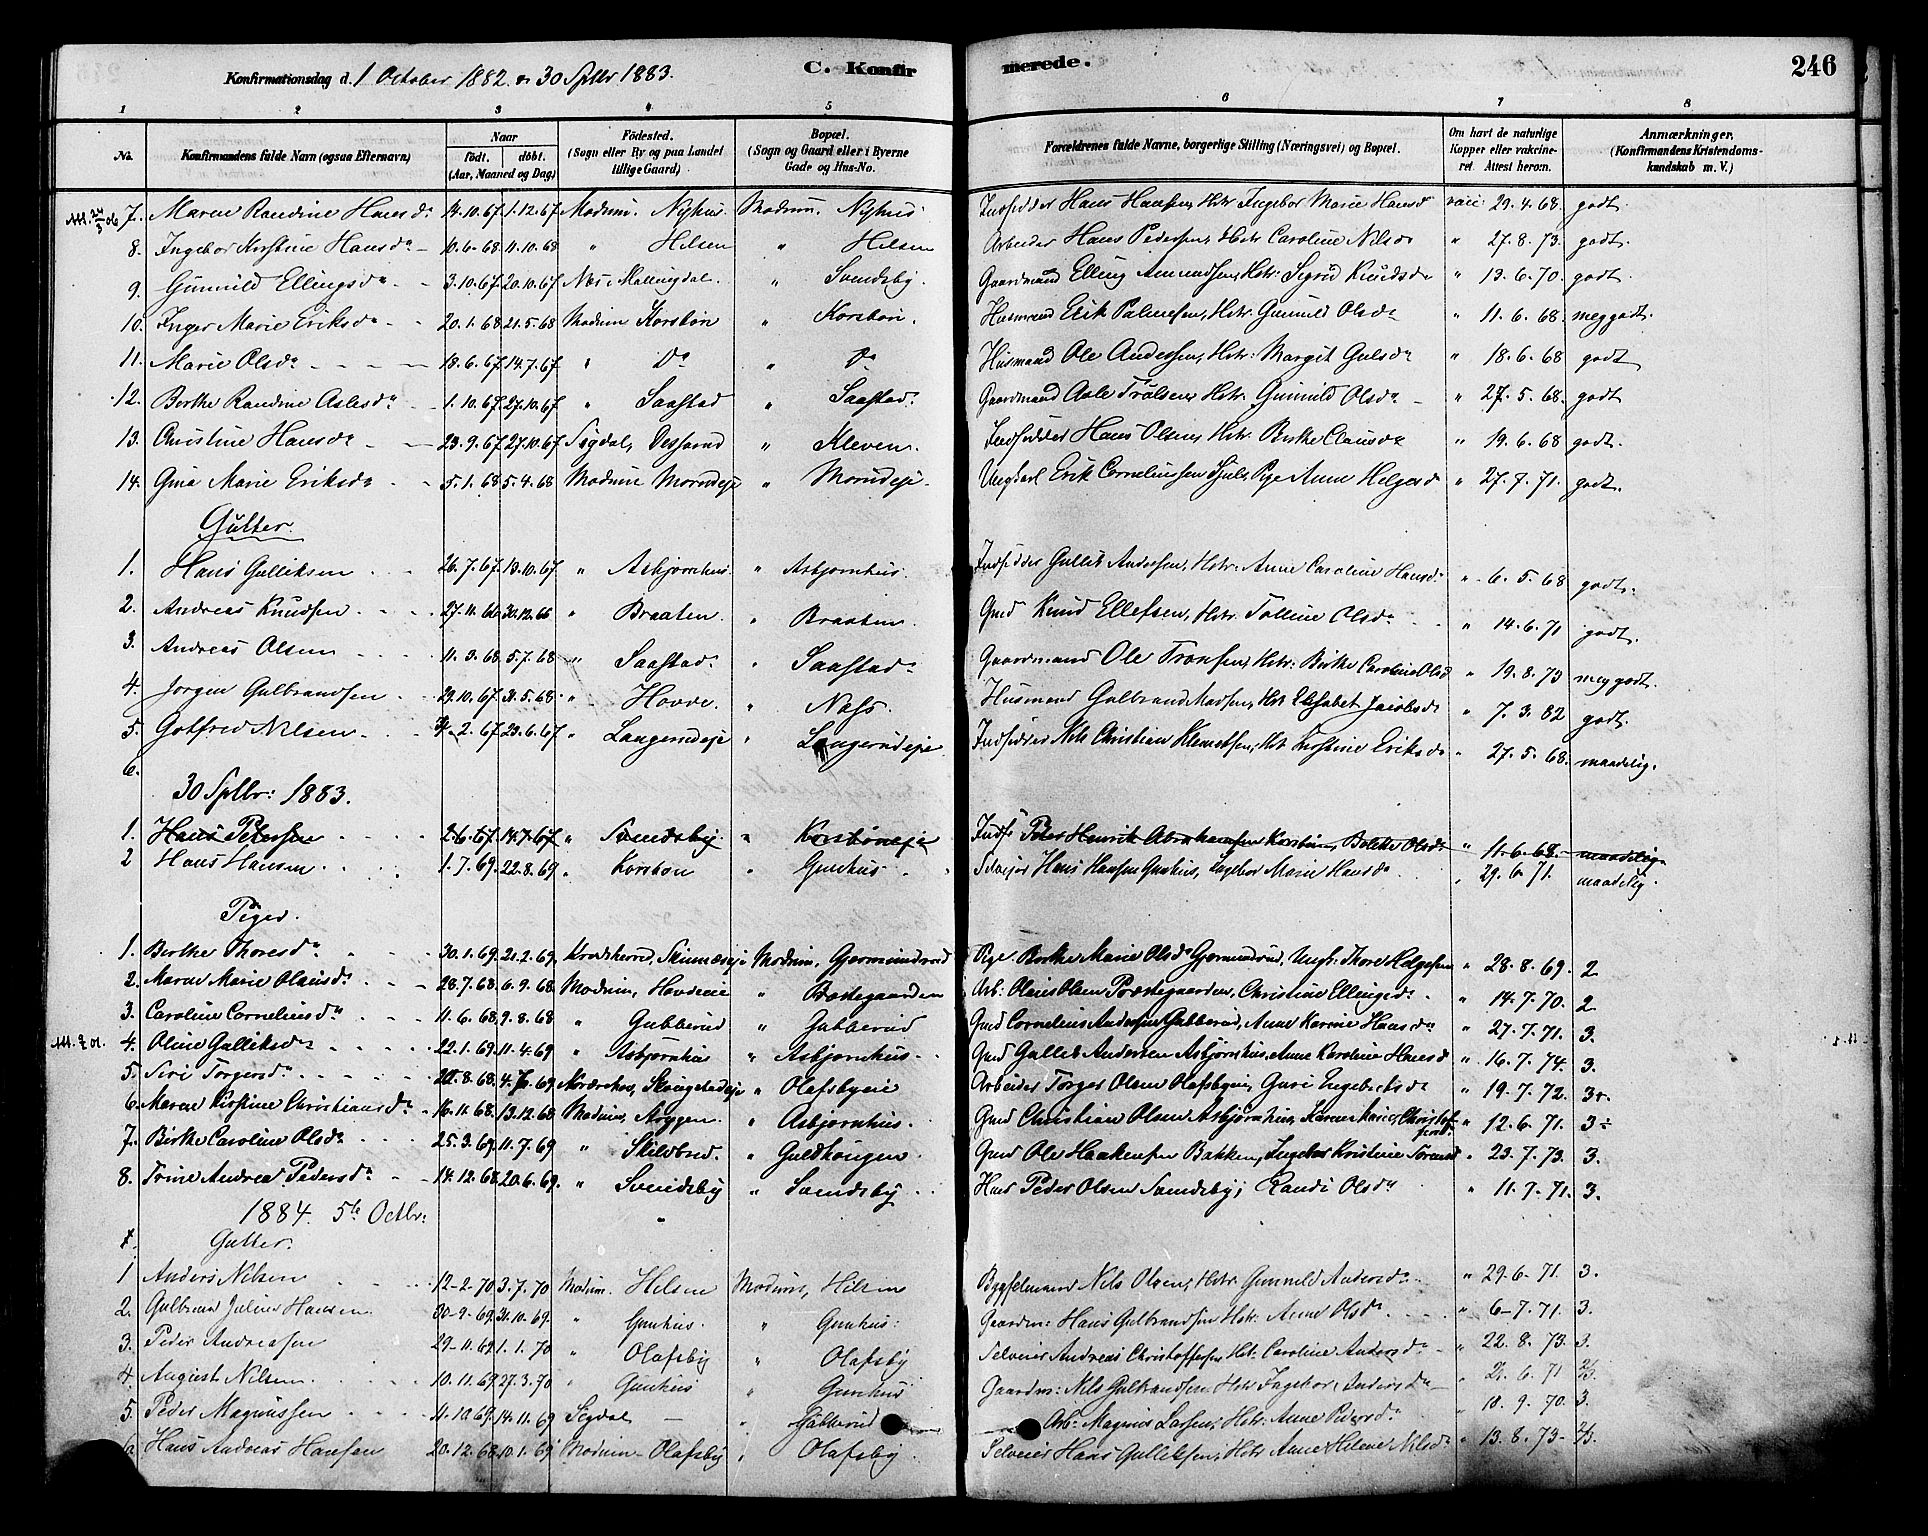 Konfirmationsdag d. 1 October 1882 & 30 Sptbr 1883. C. Konfirmerede. 246
1 2 3 4 5 6 7 8
No. Konfirmandens fulde Navn (ogsaa Efternavn) Naar født. døbt. (Aar, Maaned og Dag) Fødested. (Sogn eller By og paa Landet tillige Gaard) Bopæl. (Sogn og Gaard eller i Byerne Gade og Hus-No. Forældrenes fulde Navne, borgerlige Stilling (Næringsvei) og Bopæl. Om havt de naturlige Kopper eller vakcineret. Attest herom. Anmærkninger. (Konfirmandens Kristendomskundskab m. V.)
7. Maren Randine Hansda 14.10.67 1.12.67 Modum. Nyhus Modum. Nyhus Indsidder Hans Hansen, Hstr Ingebor Marie Hansda vacc 29.4.68. godt.
8. Ingebor Kirstine Hansda 10.6.68 11.10.68 " Hilsen " Hilsen Arbeider Hans Pedersen, Hstr Caroline Nilsda " 27.8.73. godt.
9. Gunnild Ellingsda 3.10.67 20.10.67 Næs i Hallingdal. " Svendsby. Gaardmand Elling Amundsen, Hstr: Sigrid Knudsda " 13.6.70. godt.
10. Inger Marie Eriksda 20.1.68 21.5.68 Modum Korsbøn " Korsbøn. Husmand Erik Palmesen, Hstr. Gunnild Olsda " 11.6.68. meg godt.
11. Marie Olsda 18.6.67 14.7.67 " Do " Do Husmand Ole Andersen, Hstr: Margit Gulsda " 18.6.68 godt
12. Berthe Randine Aslesda 1.10.67 27.10.67 " Saastad " Saastad. Gaardmand Asle Trulsen, Hstr. Gunnild Olsda " 27.5.68. godt
13. Christine Hansda 23.9.67 27.10.67 Sigdal, " Kleven. Indsidder Hans Olsen, Hstr. Berthe Clausda " 19.6.68 godt.
14. Gina Marie Eriksda 5.1.68 5.4.68 Modum Morudeje " Morudeje. Ungkarl Erik Corneliussen Pige Anne Helgesd " 27.7.71. godt.
Gutter.
1. Hans Gulliksen 26.7.67 13.10.67 " Asbjørnhus. " Asbjørnhus. Indsidder Gullik Andersen, Hstr: Anne Caroline Hansda " 6.5.68 godt.
2. Andreas Knudsen 27.11.66 30.12.66 " Braaten. " Braaten. Gmd Knud Ellefsen, Hstr. Olsda " 14.6.71 godt.
3. Andreas Olsen 11.3.68 5.7.68 " Saastad. " Saastad. Gaardmand Ole Tronsen, Hstr: Birthe Caroline Olsd " 19.8.73 meg godt.
4. Jørgen Gulbrandsen 29.10.67 31.5.68 " Hovde. " Næss. Husmand Gulbrand Madsen, Hstr Elisabet Jacobsda " 7.3.82 godt.
5. Gotfred Nilsen 2.67 23.6.67 " Langerudeje " Langerudeje Indsidder Nils Christian Klemetsen, Hst Kirstine Eriksda " 27.5.68. maadelig.
6.
30 Sptbr: 1883.
1. Hans Petersen 2.6.67 14.7.67 " Svendsby. " Korsbøneje Inds: Peter Henrik Abrahamsen Korsbøn, Bolette Olsda " 11.6.68. maadelig
2 Hans Hansen 1.7.69. 22.8.69 " Korsbøn " Gunhus Selveier Hans Hansen Gunhus, Ingebor Marie Hansda " 29.6.71. maadelig.
Piger.
1. Berthe Thoresda 30.1.69. 21.2.69. Krødsherred, Modum, Gjermundrud Pige Berthe Marie Olsda Gjermundrud, Ungk. Thore Helgesen " 28.8.69. 2
2. Maren Marie Olausda 28.7.68. 6.9.68 Modum, Hovdeeie " Præstegaarden Arb: Olaus Olsen Præstegaarden, Christine Ellingsda " 14.7.70. 2
3. Caroline Corneliusda 11.6.68 9.8.68 " Gubberud " Gubberud Gmd Cornelius Andersen Gubberud, Anne Karine Hansda " 27.7.71. 3.
4. Oline Gulliksda 22.1.69 11.4.69 " Asbjørnhus " Asbjørnhus. Gmd Gullik Andersen Asbjørnhus, Anne Karoline Hansd " 16.7.74. 3.
5. Siri Torgersda 8.68. 4.7.69. Norderhov, " Olafsbyeie Arbeider Torger Olsen Olafsbyeie, Guri Engebretsda " 19.7.72. 3+.
6. Maren Kirstine Christiansda 16.11.68. 13.12.68 Modum, Noggen. " Asbjørnhus. Gmd Christian Olsen Asbjørnhus, Karen Marie Christof- " 12.6.71. 3÷
7. Birthe Caroline Olsda 25.3.69. 11.7.69 " Skilbred. " Guldhougen Gmd Ole Haakensen Bakken, Ingebor Kristine " 23.7.73. 3.
8. Trine Andrea Pedersda 14.12.68. 20.6.69. " Svendsby " Svendsby Peder Olsen Svendsby, Randi Olsda " 11.7.71. 3.
1884. 5te Octbr:
Gutter.
1 Anders Nilsen 12-2-70 3.7.70 Modum. Hilsen Modum, Hilsen Bygselmand Nils Olsen, Hstr. Gunnild Andersda " 29.6.71. 3.
2. Gulbrand Julius Hansen 30-9-69. 31.10.69. " Gunhus. " Gunhus: Gaardm: Hans Gulbrandsen Hstr. Anne Olsda " 6-7.71. 3.
3. Peder Andreassen 29-11.69 1.1.70 " Olafsby " Olafsby Selveier Andreas Christoffersen Hstr. Caroline Andersda " 22.8.73. 3.
4. August Nilsen 10.11.69 27.3.70 " Gunhus " Gunhus Gaardm: Nils Gulbrandsen Hstr Ingebor Andersda " 6.71 2/3.
5. Peder Magnussen 10.69. 14.11.69 Sigdal " Gubberud Arb: Magnus Larsen, Hstr: Anne Pedersda " 10.9.70 3.
6. Hans Andreas Hansen 20.12.68 10.1.69 Modum- Olafsby " Olafsby. Selveier Hans Gulliksen, Hstr Anne Helene Nilsda " 13.8.73- 2/3.